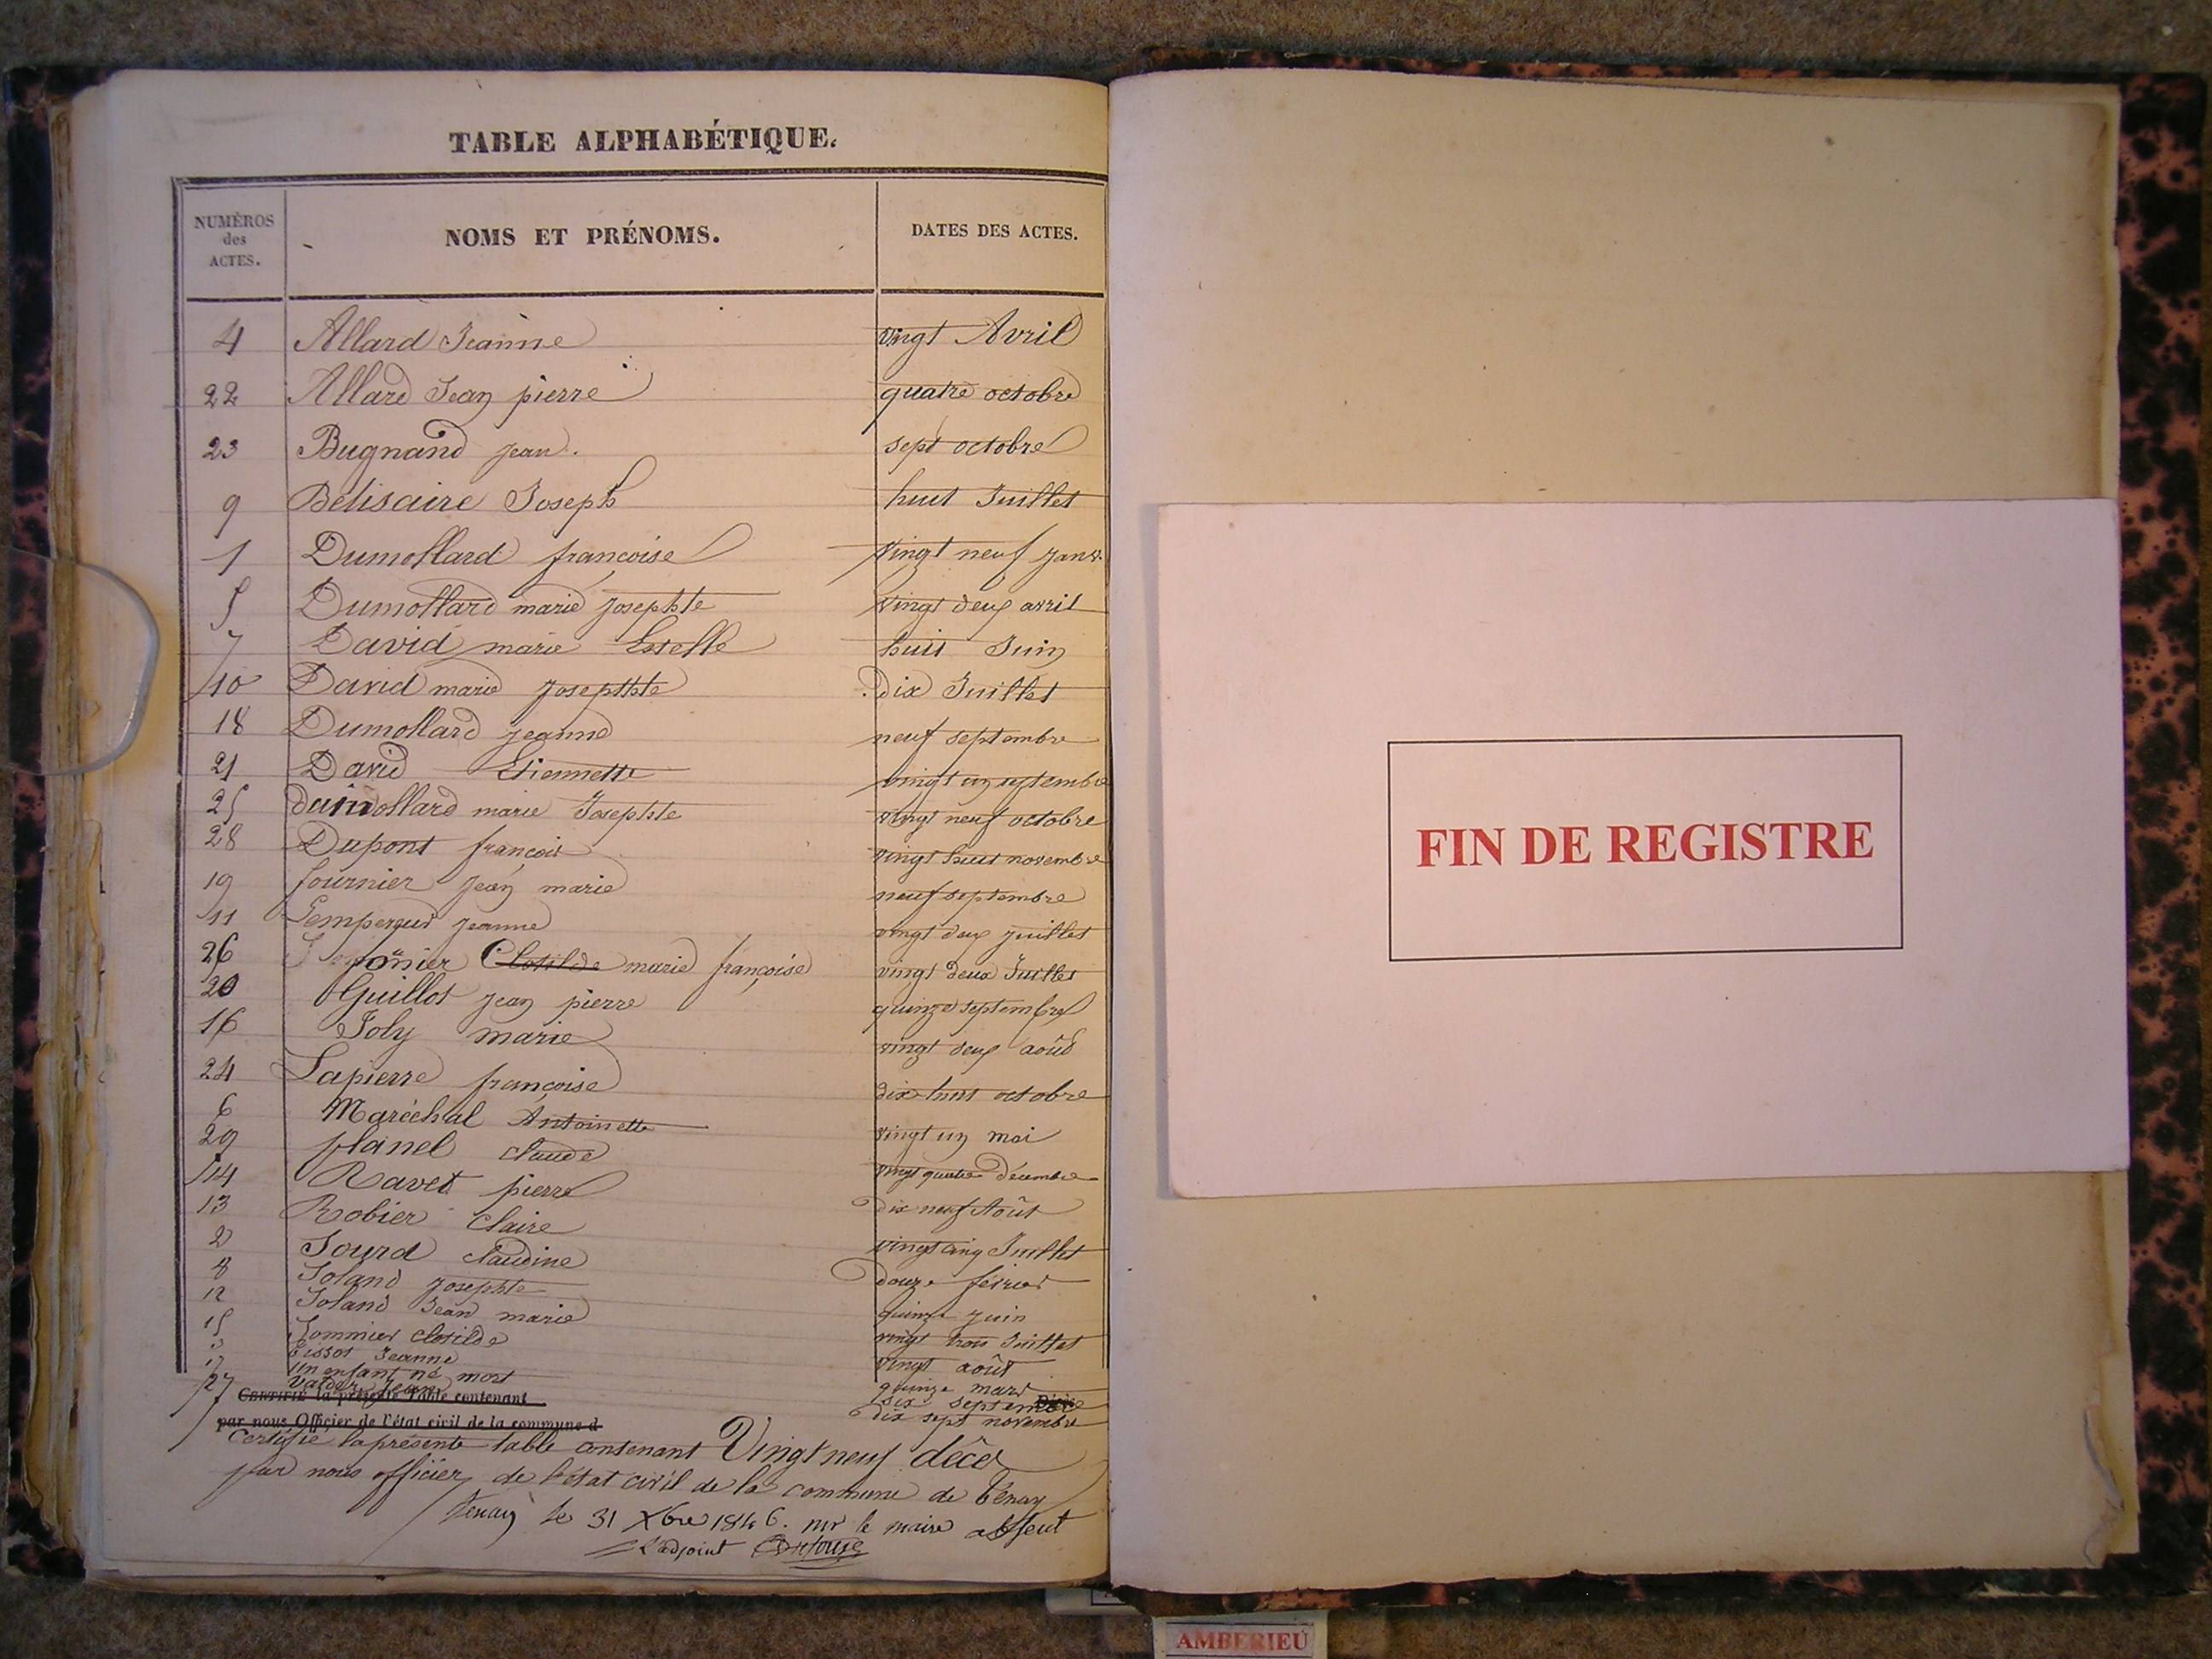 TABLE ALPHABÉTIQUE.
NUMÉROS des ACTES. NOMS ET PRÉNOMS. DATES DES ACTES.
4 Allard Jeanne vingt Avril
22 Allard Jean pierre quatre octobre
23 Bugnand jean. sept octobre
9 Bélisaire Joseph huit Juillet
1 Dumollard françoise vingt neuf janv.
5 Dumollard marie josephte vingt deux avril
7 David marie Estelle huit Juin
10 David marie josephte dix Juillet
18 Dumollard jeanne neuf septembre
21 David Etiennette vingt un septembre
25 dumollard marie Josephte vingt neuf octobre
28 Dupont françois vingt huit novembre
19 fournier jean marie neuf septembre
11 Lempereur jeanne vingt deux juillet
26 Clotilde marie françoise vingt deux Juillet
20 Guillot jean pierre quinze septembre
16 Joly marie vingt deux août
24 Lapierre françoise dix huit octobre
6 Maréchal Antoinette vingt un mai
29 planel claude vingt quatre décembre
14 Ravet pierre dix neuf Août
13 Robier Claire vingt cinq Juillet
2 Sourd claudine douze février
8 Soland josephte quinze juin
12 Soland Jean marie vingt trois Juillet
15 Sommier clotilde vingt août
3 Tissot Jeanne quinze mars
17 un enfant né mort dix septembre
27 Jean dix sept novembre
CERTIFIÉ la présente Table contenant
par nous Officier de l'état civil de la commune d
Certifié la présente table contenant Vingt neuf décès
par nous officier de l'état civil de la commune de Tenay
Tenay le 31 Xbre 1846. mr le maire absent
L'adjoint
FIN DE REGISTRE
AMBERIEU